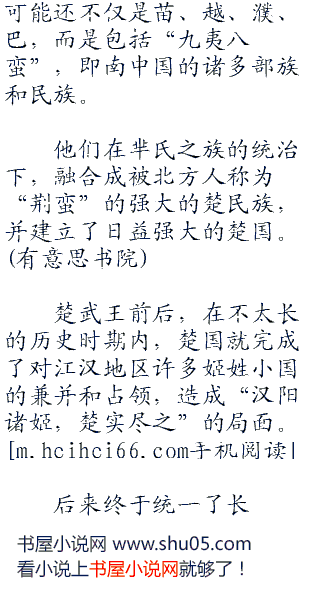 可能还不仅是苗、越、濮、
巴，而是包括“九夷八
蛮”，即南中国的诸多部族
和民族。
他们在芈氏之族的统治
下，融合成被北方人称为
“荆蛮”的强大的楚民族，
并建立了日益强大的楚国。
(有意思书院)
楚武王前后，在不太长
的历史时期内，楚国就完成
了对江汉地区许多姬姓小国
的兼并和占领，造成“汉阳
诸姬，楚实尽之”的局面。
[m.hcihci66.com手机阅读|
后来终于统一了长
书屋小说网 www.shu05.com
看小说上书屋小说网就够了！